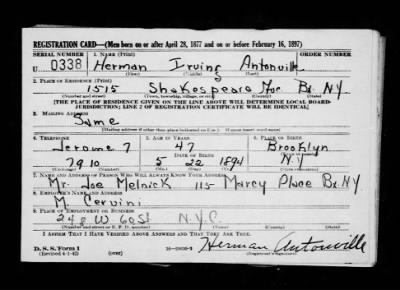 REGISTRATION CARD—(Men born on or after April 28, 1877 and on or before February 16, 1897)
SERIAL NUMBER 1. NAME (Print) ORDER NUMBER
U 0338 Herman Irving Antonville
(First) (Middle) (Last)
2. PLACE OF RESIDENCE (Print)
1515 Shakespeare Ave Bx. NY
(Number and street) (Town, township, village, or city) (County) (State)
[THE PLACE OF RESIDENCE GIVEN ON THE LINE ABOVE WILL DETERMINE LOCAL BOARD
JURISDICTION; LINE 2 OF REGISTRATION CERTIFICATE WILL BE IDENTICAL]
3. MAILING ADDRESS
Same
[Mailing address if other than place indicated on line 2. If same insert word same]
4. TELEPHONE 5. AGE IN YEARS 6. PLACE OF BIRTH
Jerome 7 47 Brooklyn
DATE OF BIRTH
7910 5 22 1894 N.Y
7. NAME AND ADDRESS OF PERSON WHO WILL ALWAYS KNOW YOUR ADDRESS
Mr. Joe Melnick 115 Marcy Place Bx. NY
8. EMPLOYER'S NAME AND ADDRESS
M. Cervini
9. PLACE OF EMPLOYMENT OR BUSINESS
248 W 60 St N.Y.C.
(Number and street or R. F. D. number) (Town) (County) (State)
I AFFIRM THAT I HAVE VERIFIED ABOVE ANSWERS AND THAT THEY ARE TRUE.
Herman Antonville
D. S. S. Form 1
(Revised 4-1-42) (over) (Registrant's signature)